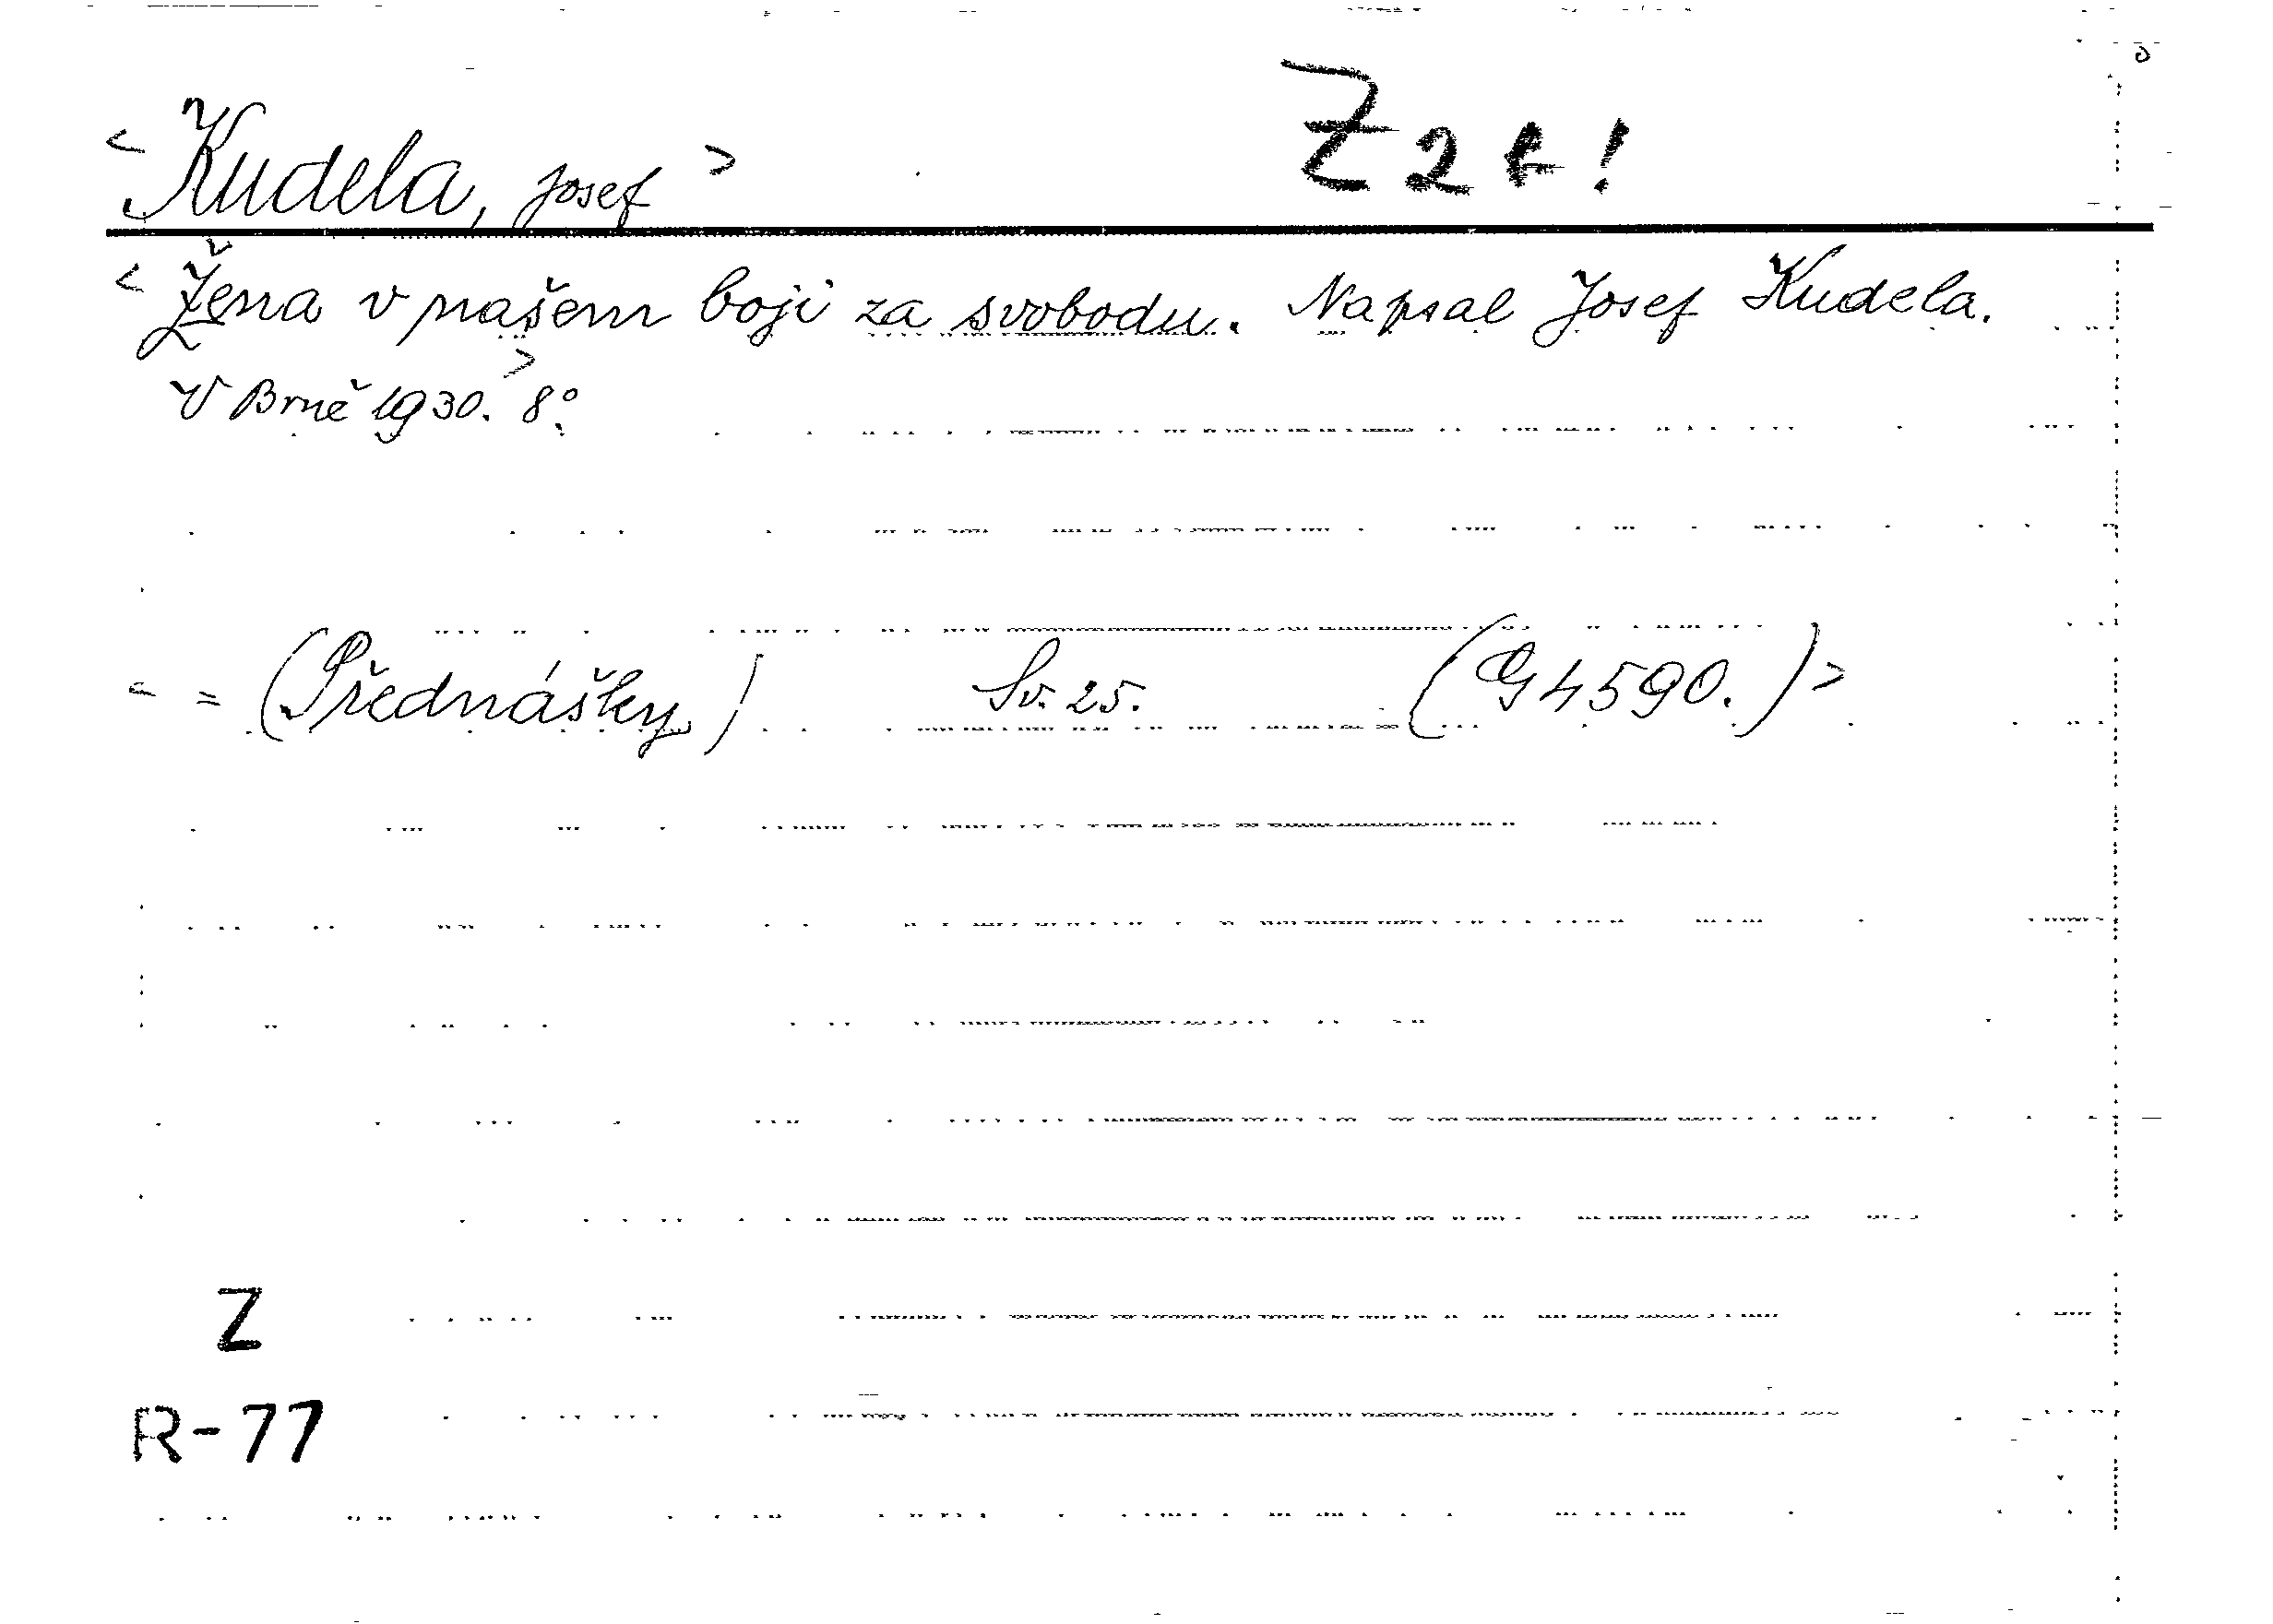 < Kudela, Josef >
< Žena v našem boji za svobodu. Napsal Josef Kudela.
V Brně 1930. > 8°.
< = (Přednášky) Sv. 25. (G 4590.) >
Z
R-77